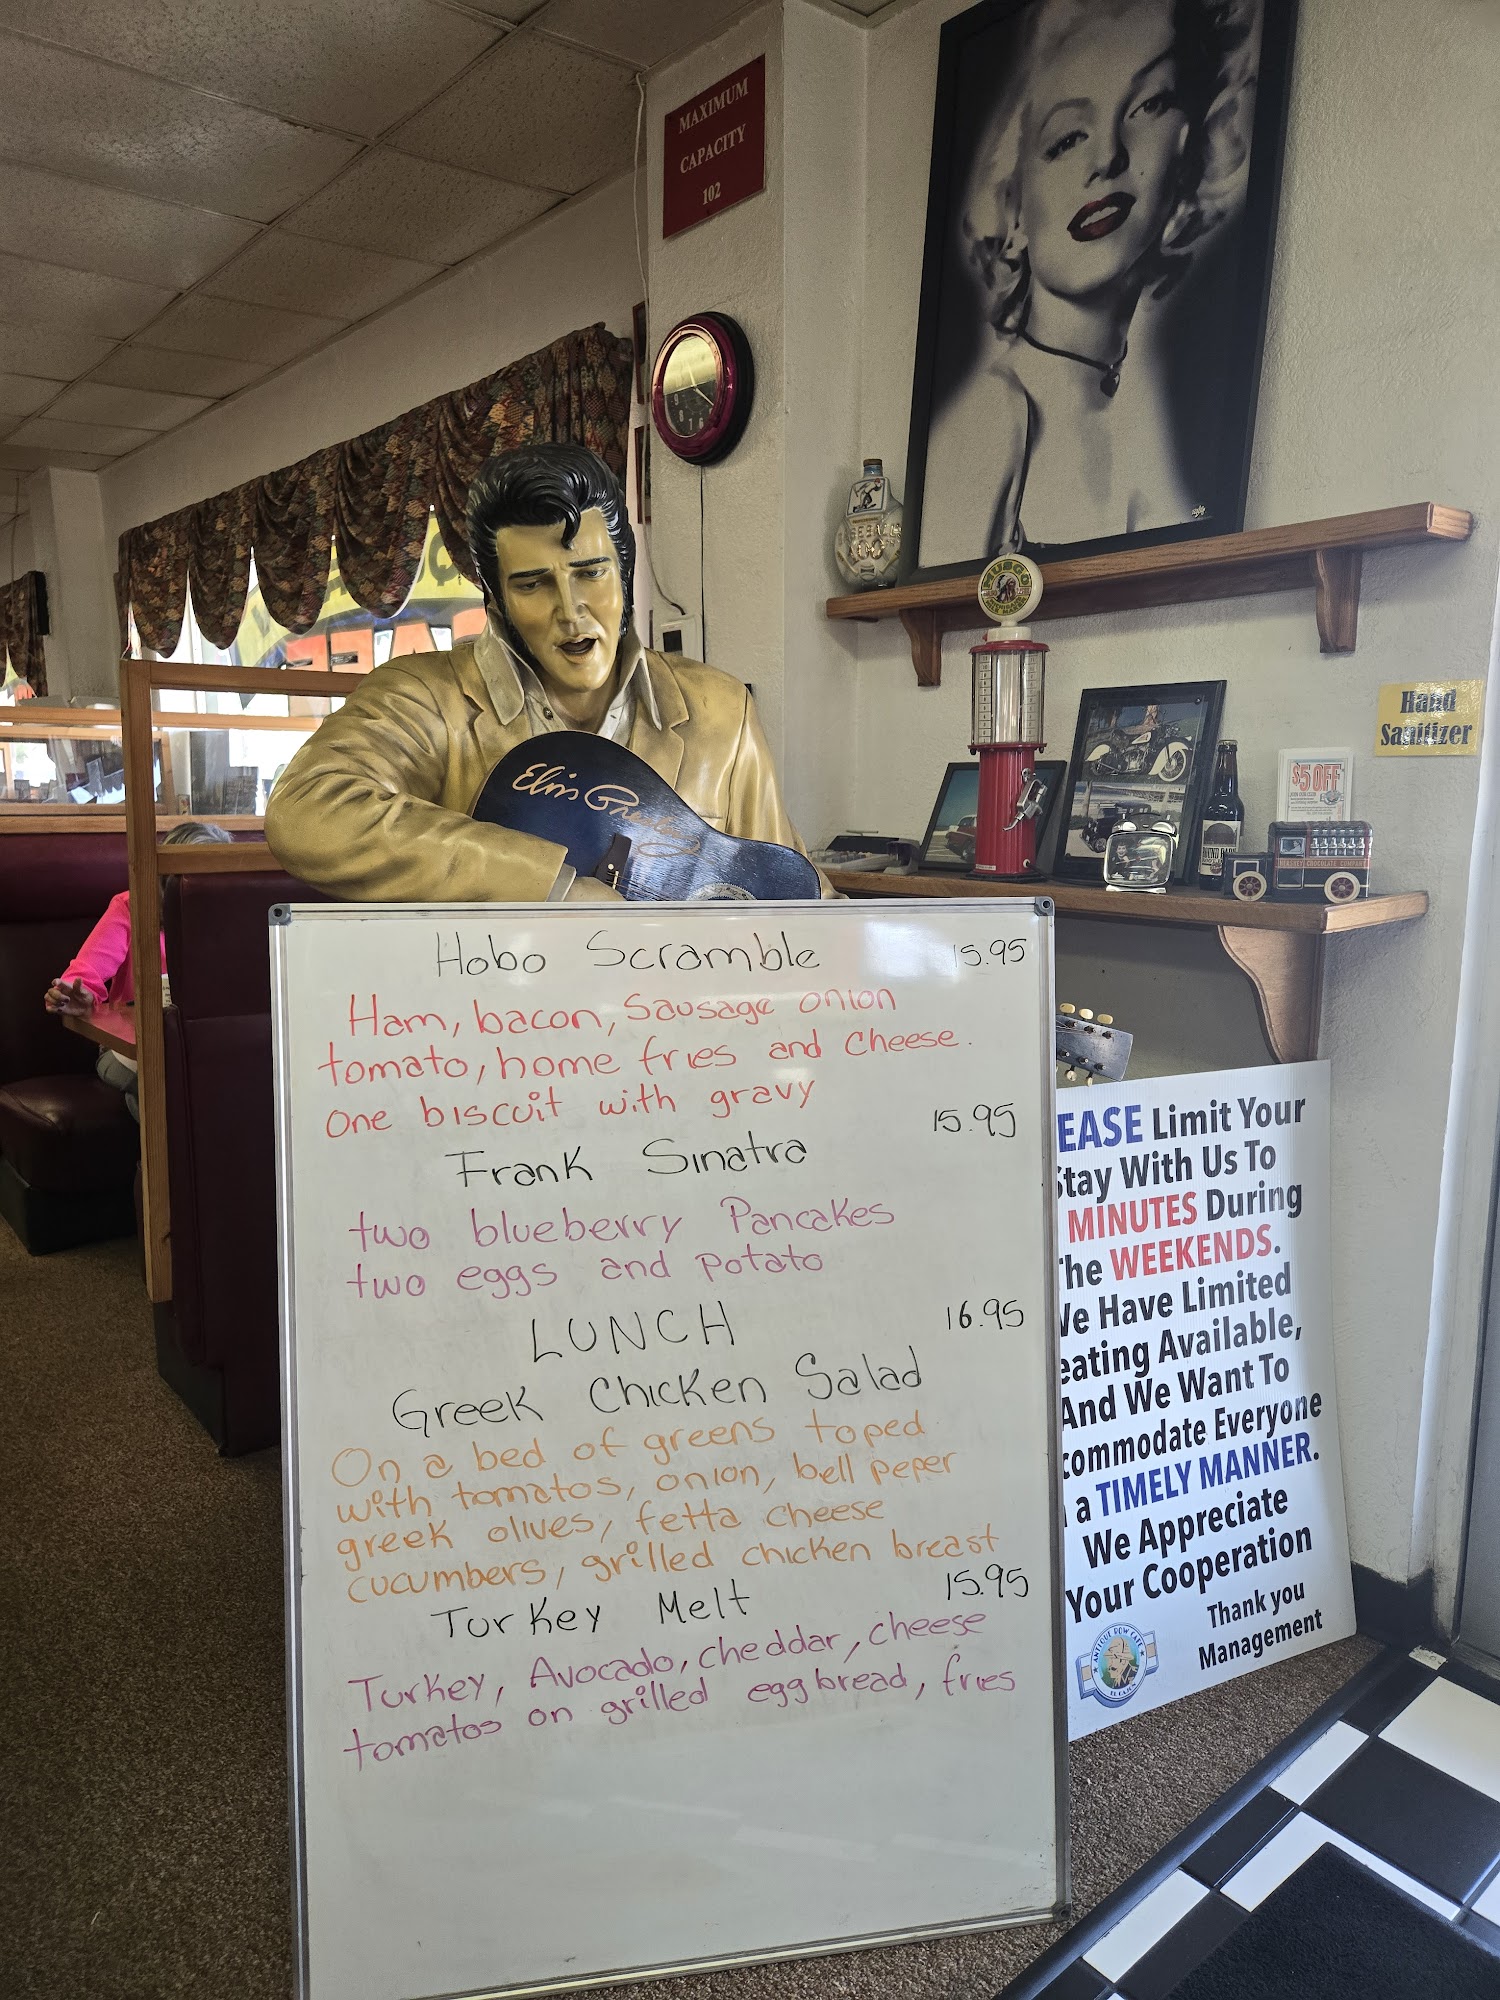 MAXIMUM
CAPACITY
102
Elvis Presley
Hand
Sanitizer
$5 OFF
Hobo Scramble 15.95
Ham, bacon, Sausage onion
tomato, home fries and cheese.
one biscuit with gravy
Frank Sinatra 15.95
two blueberry Pancakes
two eggs and potato
LUNCH 16.95
Greek Chicken Salad
On a bed of greens toped
with tomatos, onion, bell peper
greek olives, fetta cheese
cucumbers, grilled chicken breast
Turkey Melt 15.95
Turkey, Avocado, cheddar, cheese
tomatos on grilled egg bread, fries
EASE Limit Your
Stay With Us To
MINUTES During
The WEEKENDS.
We Have Limited
eating Available,
And We Want To
commodate Everyone
a TIMELY MANNER.
We Appreciate
Your Cooperation
Thank you
Management
ANTIQUE ROW CAFE